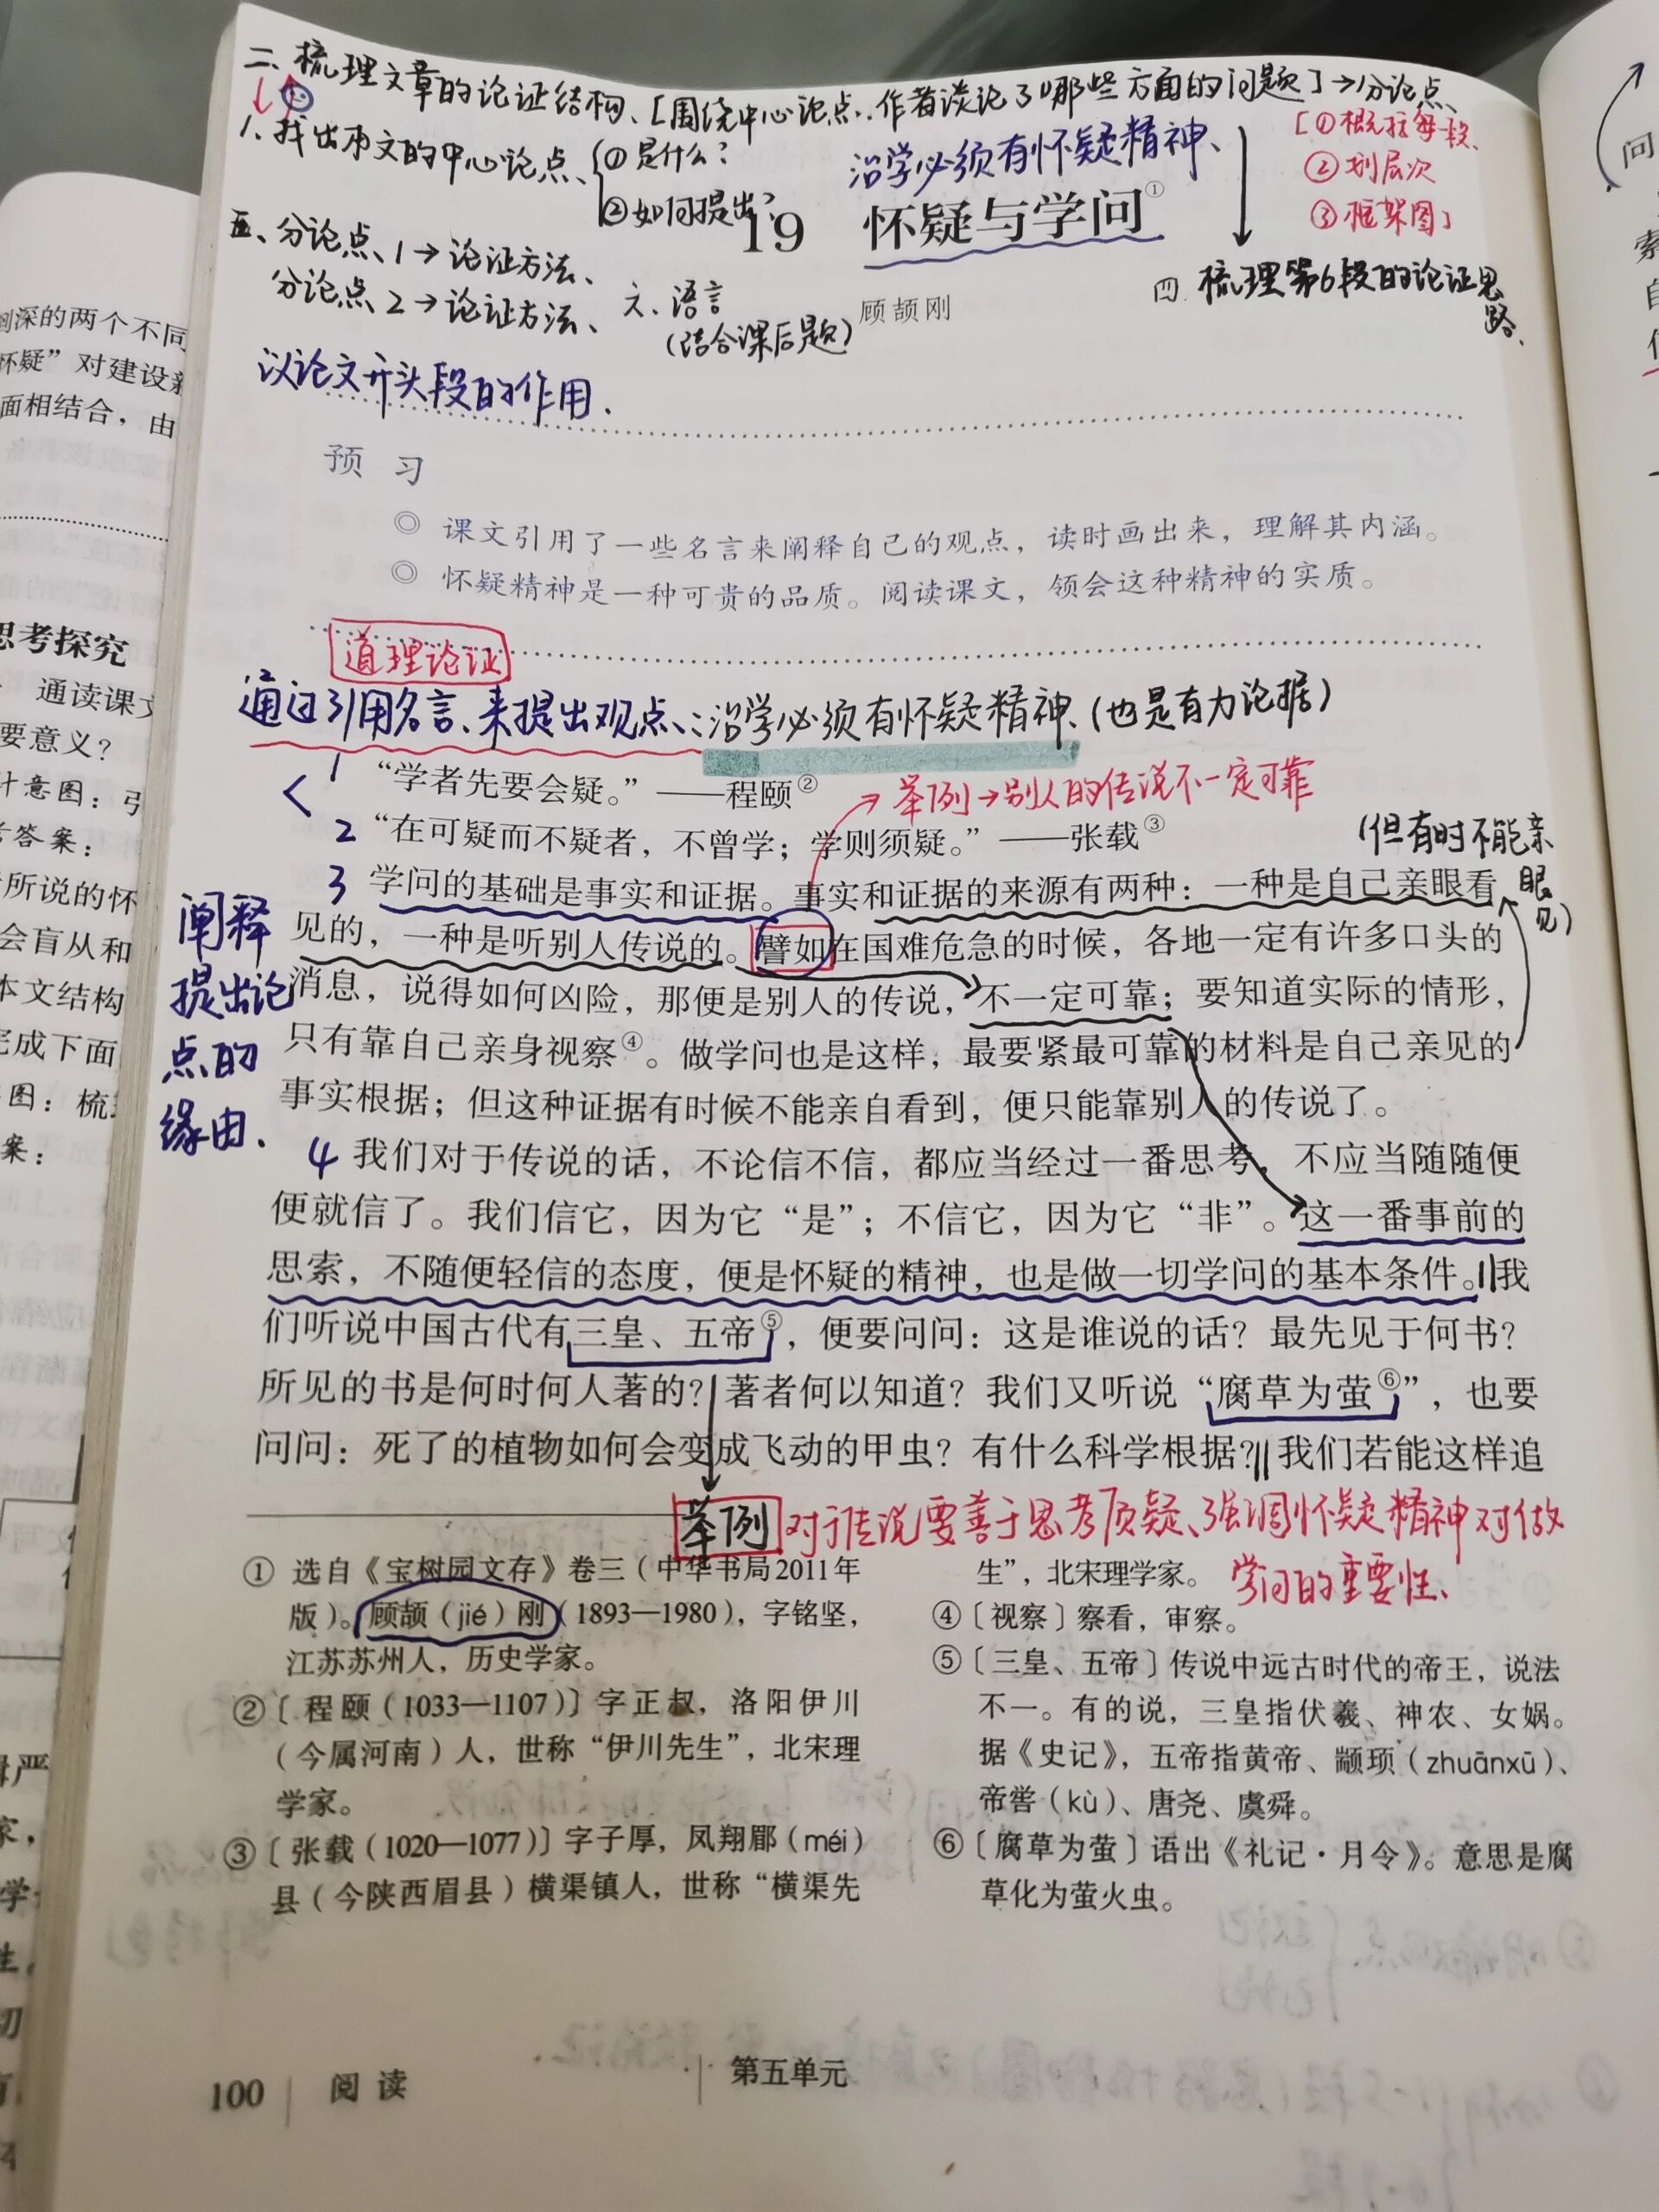 二、梳理文章的论证结构、[围绕中心论点,作者谈论了哪些方面的问题]→分论点、
1、找出本文的中心论点、
①是什么?
②如何提出?
治学必须有怀疑精神、
[①概括每段、
②划层次
③框架图]
19 怀疑与学问①
五、分论点、1→论证方法、
分论点 2→论证方法、
六、语言
(结合课后题)
顾颉刚
四、梳理第6段的论证思
路、
议论文开头段的作用.
预 习
◎ 课文引用了一些名言来阐释自己的观点,读时画出来,理解其内涵。
◎ 怀疑精神是一种可贵的品质。阅读课文,领会这种精神的实质。
道理论证
通过引用名言、来提出观点、:治学必须有怀疑精神、(也是有力论据)
1 “学者先要会疑。”——程颐②
举例→别人的传说不一定可靠
2 “在可疑而不疑者,不曾学;学则须疑。”——张载③
(但有时不能亲
眼
见)
3 学问的基础是事实和证据。事实和证据的来源有两种:一种是自己亲眼看
见的,一种是听别人传说的。譬如在国难危急的时候,各地一定有许多口头的
消息,说得如何凶险,那便是别人的传说,不一定可靠;要知道实际的情形,
只有靠自己亲身视察④。做学问也是这样,最要紧最可靠的材料是自己亲见的
事实根据;但这种证据有时候不能亲自看到,便只能靠别人的传说了。
阐释
提出论
点的
缘由、
4 我们对于传说的话,不论信不信,都应当经过一番思考,不应当随随便
便就信了。我们信它,因为它“是”;不信它,因为它“非”。这一番事前的
思索,不随便轻信的态度,便是怀疑的精神,也是做一切学问的基本条件。我
们听说中国古代有三皇、五帝⑤,便要问问:这是谁说的话?最先见于何书?
所见的书是何时何人著的?著者何以知道?我们又听说“腐草为萤⑥”,也要
问问:死了的植物如何会变成飞动的甲虫?有什么科学根据?我们若能这样追
举例 对于传说要善于思考质疑、强调怀疑精神对做
学问的重要性、
① 选自《宝树园文存》卷三(中华书局2011年
版)。顾颉(jié)刚(1893—1980),字铭坚,
江苏苏州人,历史学家。
②〔程颐(1033—1107)〕字正叔,洛阳伊川
(今属河南)人,世称“伊川先生”,北宋理
学家。
③〔张载(1020—1077)〕字子厚,凤翔郿(méi)
县(今陕西眉县)横渠镇人,世称“横渠先
生”,北宋理学家。
④〔视察〕察看,审察。
⑤〔三皇、五帝〕传说中远古时代的帝王,说法
不一。有的说,三皇指伏羲、神农、女娲。
据《史记》,五帝指黄帝、颛顼(zhuānxū)、
帝喾(kù)、唐尧、虞舜。
⑥〔腐草为萤〕语出《礼记·月令》。意思是腐
草化为萤火虫。
100 阅 读 第五单元
刻深的两个不同
怀疑”对建设新
面相结合,由
思考探究
通读课文
要意义?
计意图:引
考答案:
所说的怀
会盲从和
本文结构
完成下面
图:梳
案:
问
索